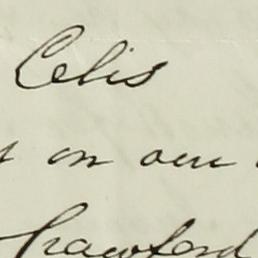 Celis
on our
Crawford